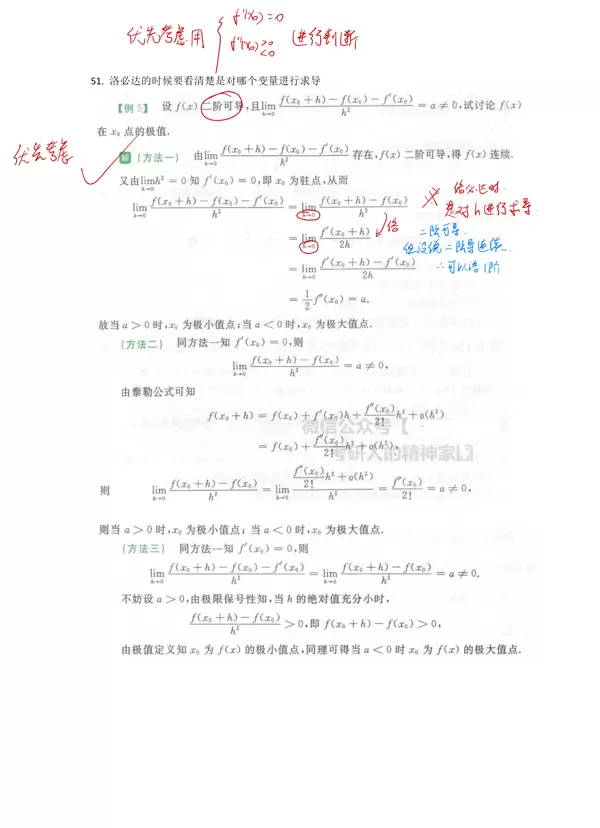 优先考虑用 { f'(x₀)=0
f''(x₀) >0 <0 进行判断
51. 洛必达的时候要看清楚是对哪个变量进行求导
【例 8】 设 f(x) 二阶可导,且 lim_{h→0} \frac{f(x₀+h)-f(x₀)-f'(x₀)}{h²} = a ≠ 0,试讨论 f(x)
在 x₀ 点的极值.
优先考虑
解 (方法一) 由 lim_{h→0} \frac{f(x₀+h)-f(x₀)-f'(x₀)}{h²} 存在,f(x) 二阶可导,得 f(x) 连续.
又由 lim_{h→0} h² = 0 知 f'(x₀) = 0,即 x₀ 为驻点,从而
lim_{h→0} \frac{f(x₀+h)-f(x₀)-f'(x₀)}{h²} = lim_{h→0} \frac{f(x₀+h)-f(x₀)}{h²}
洛必达时,
是对 h 进行求导
= lim_{h→0} \frac{f'(x₀+h)}{2h}
洛
二阶可导,
但没说二阶导连续
∴可以洛1阶
= lim_{h→0} \frac{f'(x₀+h)-f'(x₀)}{2h}
= \frac{1}{2} f''(x₀) = a.
故当 a > 0 时,x₀ 为极小值点;当 a < 0 时,x₀ 为极大值点.
(方法二) 同方法一知 f'(x₀) = 0,则
lim_{h→0} \frac{f(x₀+h)-f(x₀)}{h²} = a ≠ 0,
由泰勒公式可知
f(x₀+h) = f(x₀) + f'(x₀)h + \frac{f''(x₀)}{2!}h² + o(h²)
微信公众号【
= f(x₀) + \frac{f''(x₀)}{2!}h² + o(h²),
考研人的精神家
则 lim_{h→0} \frac{f(x₀+h)-f(x₀)}{h²} = lim_{h→0} \frac{\frac{f''(x₀)}{2!}h²+o(h²)}{h²} = \frac{f''(x₀)}{2!} = a ≠ 0,
则当 a > 0 时,x₀ 为极小值点; 当 a < 0 时,x₀ 为极大值点.
(方法三) 同方法一知 f'(x₀) = 0,则
lim_{h→0} \frac{f(x₀+h)-f(x₀)-f'(x₀)}{h²} = lim_{h→0} \frac{f(x₀+h)-f(x₀)}{h²} = a ≠ 0.
不妨设 a > 0,由极限保号性知,当 h 的绝对值充分小时,
\frac{f(x₀+h)-f(x₀)}{h²} > 0,即 f(x₀+h)-f(x₀) > 0,
由极值定义知 x₀ 为 f(x) 的极小值点,同理可得当 a < 0 时 x₀ 为 f(x) 的极大值点.